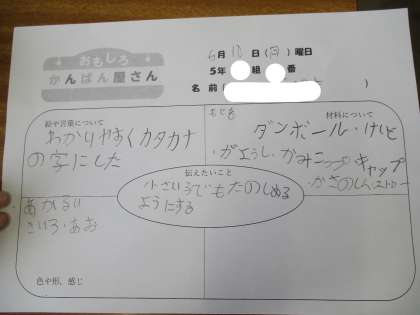 おもしろ
かんばん屋さん
6月13日(月)曜日
5年 組 番
名前( )
絵や言葉について
わかりやすくカタカナ
の字にした
材料について
ダンボール・けいと
・がようし・かみコップ キャップ
・かさのしん ストロー
伝えたいこと
小さい子でもたのしめる
ようにする
あかるい
きいろ・あお
色や形、感じ